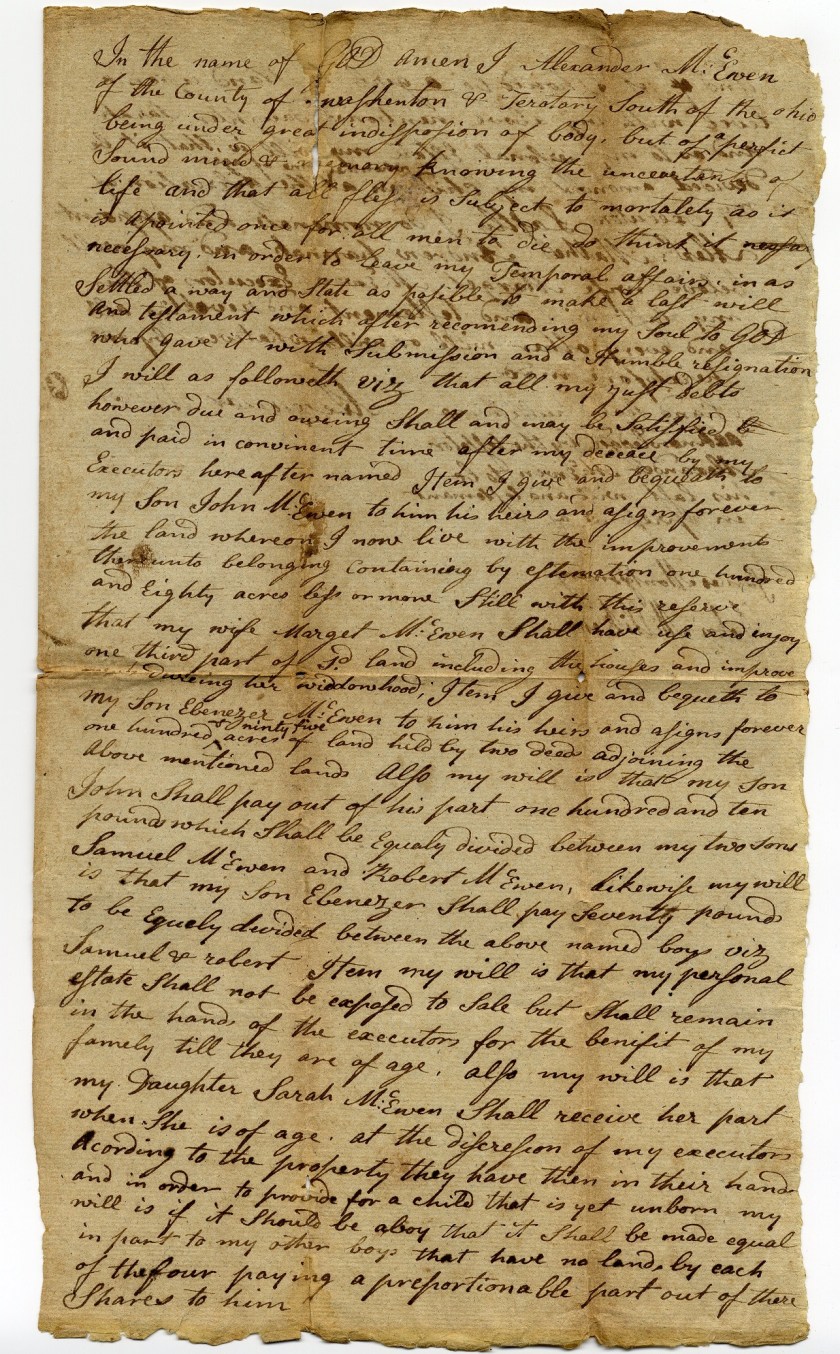 In the name of GOD amen I Alexander Mc.Ewen
of the County of washenton & Teratary South of the ohio
being under great indisposion of body, but of a perfict
Sound mind & memory knowing the uncertanty of
life and that all flesh is Subject to mortalety as it
is apointed once for all men to die do think it
necessary in order to leave my Temporal affairs in as
Settled a way and State as posible to make a last will
and testament which after recomending my Soul to GOD
who gave it with Submission and a Humble resignation
I will as followeth viz that all my just Debts
however due and oweing Shall and may be Satisfied &
and paid in convinent time after my decease by my
Executors hereafter named Item I give and bequeath to
my Son John Mc.Ewen to him his heirs and asigns forever
the land whereon I now live with the improvements
thereunto belonging containing by estemation one hundred
and Eighty acres less or more Still with this reserve
that my wife Marget Mc.Ewen Shall have use and injoy
one third part of sd land including the houses and improve
dureing her widdowhood; Item I give and bequeth to
my Son Ebenezer Mc.Ewen to him his heirs and asigns forever
one hundred & ninty five acres of land hild by two deeds adjoining the
above mentioned lands Also my will is that my son
John Shall pay out of his part one hundred and ten
pounds which Shall be Equaly divided between my two sons
Samuel Mc.Ewen and Robert Mc.Ewen, likewise my will
is that my Son Ebenezer Shall pay Seventy pounds
to be Equely divided between the above named boys viz
Samuel & robert Item my will is that my personal
estate Shall not be exposed to Sale but Shall remain
in the hands of the executors for the benifit of my
famely till they are of age. also my will is that
my Daughter Sarah Mc.Ewen Shall receive her part
when She is of age. at the discresion of my executors
Acording to the property they have then in their hands
and in order to provide for a child that is yet unborn my
will is if it Should be aboy that it Shall be made equal
in part to my other boys that have no lands by each
of the four paying a preportionable part out of there
Shares to him